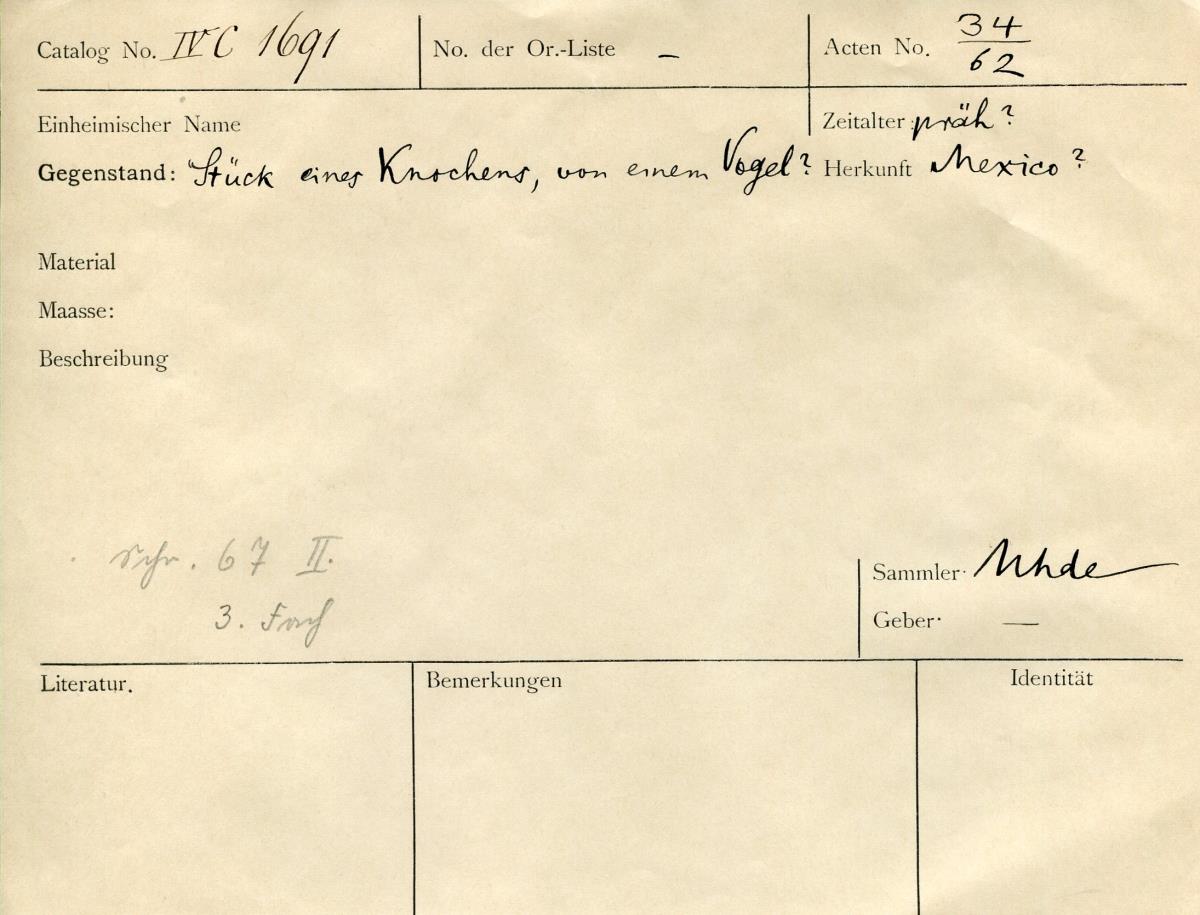 Catalog No. IV C 1691 No. der Or.-Liste – Acten No. 34/62
Einheimischer Name Zeitalter: präh?
Gegenstand: Stück eines Knochens, von einem Vogel? Herkunft Mexico?
Material
Maasse:
Beschreibung
Schr. 67 II.
3. Fach
Sammler· Uhde
Geber· —
Literatur. Bemerkungen Identität